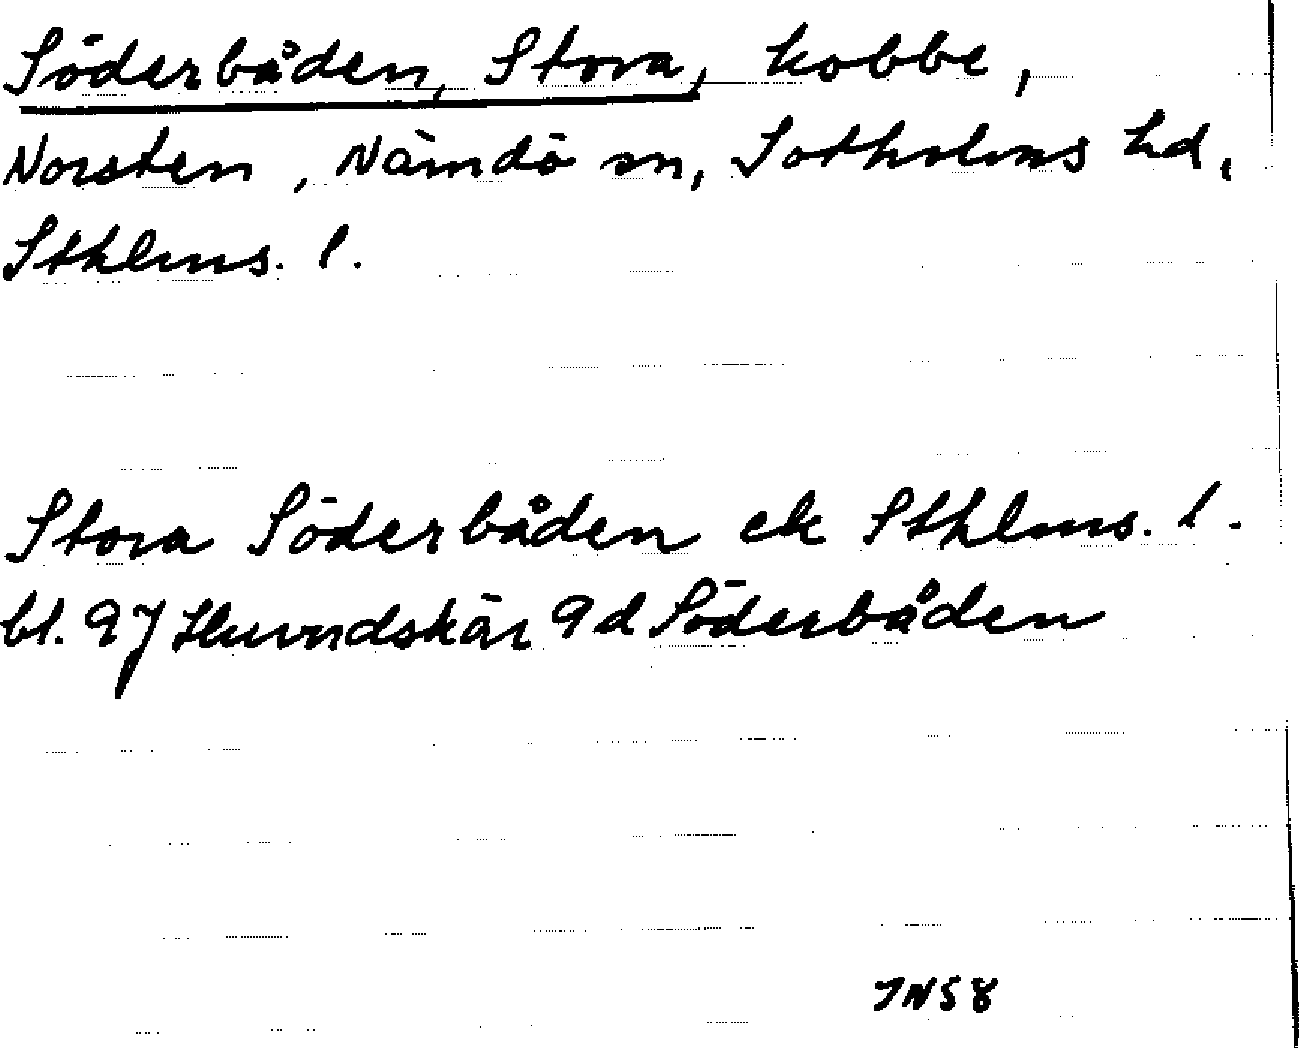 Söderbåden, Stora, kobbe,
Norsten, Nämdö sn, Sotholms hd,
Sthlms. l.
Stora Söderbåden ek Sthlms. l.
bl. 97 Huvudskär 9d Söderbåden
JN58